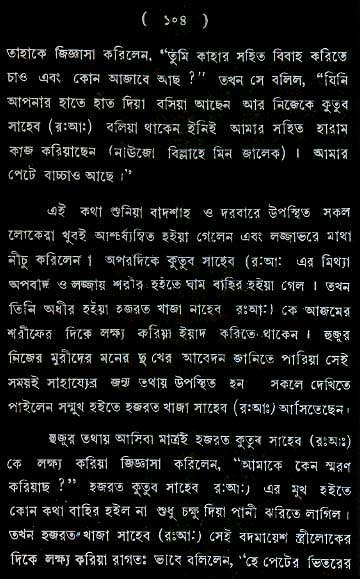 ( ১০৪ )
তাহাকে জিজ্ঞাসা করিলেন, “তুমি কাহার সহিত বিবাহ করিতে
চাও এবং কোন আজাবে আছ ?” তখন সে বলিল, “যিনি
আপনার হাতে হাত দিয়া বসিয়া আছেন আর নিজেকে কুতুব
সাহেব (র:আ:) বলিয়া থাকেন ইনিই আমার সহিত হারাম
কাজ করিয়াছেন (নাউজো বিল্লাহে মিন জালেক) । আমার
পেটে বাচ্চাও আছে ।”
এই কথা শুনিয়া বাদশাহ ও দরবারে উপস্থিত সকল
লোকেরা খুবই আশ্চর্য্যম্বিত হইয়া গেলেন এবং লজ্জাভরে মাথা
নীচু করিলেন । অপরদিকে কুতুব সাহেব (র:আ: এর মিথ্যা
অপবাদ ও লজ্জায় শরীর হইতে ঘাম বাহির হইয়া গেল । তখন
তিনি অধীর হইয়া হজরত খাজা সাহেব র:আ:) কে আজমের
শরীফের দিকে লক্ষ্য করিয়া ইয়াদ করিতে থাকেন । হুজুর
নিজের মুরীদের মনের দু খের আবেদন জানিতে পারিয়া সেই
সময়ই সাহায্যের জন্য তথায় উপস্থিত হন সকলে দেখিতে
পাইলেন সম্মুখ হইতে হজরত খাজা সাহেব (র:আঃ) আসিতেছেন।
হুজুর তথায় আসিবা মাত্রই হজরত কুতুব সাহেব (রঃআঃ)
কে লক্ষ্য করিয়া জিজ্ঞাসা করিলেন, “আমাকে কেন স্মরণ
করিয়াছ ?” হজরত কুতুব সাহেব র:আ:) এর মুখ হইতে
কোন কথা বাহির হইল না শুধু চক্ষু দিয়া পানী ঝরিতে লাগিল।
তখন হজরত খাজা সাহেব (র:আ:) সেই বদমায়েশ স্ত্রীলোকের
দিকে লক্ষ্য করিয়া রাগতঃ ভাবে বলিলেন, “হে পেটের ভিতরের